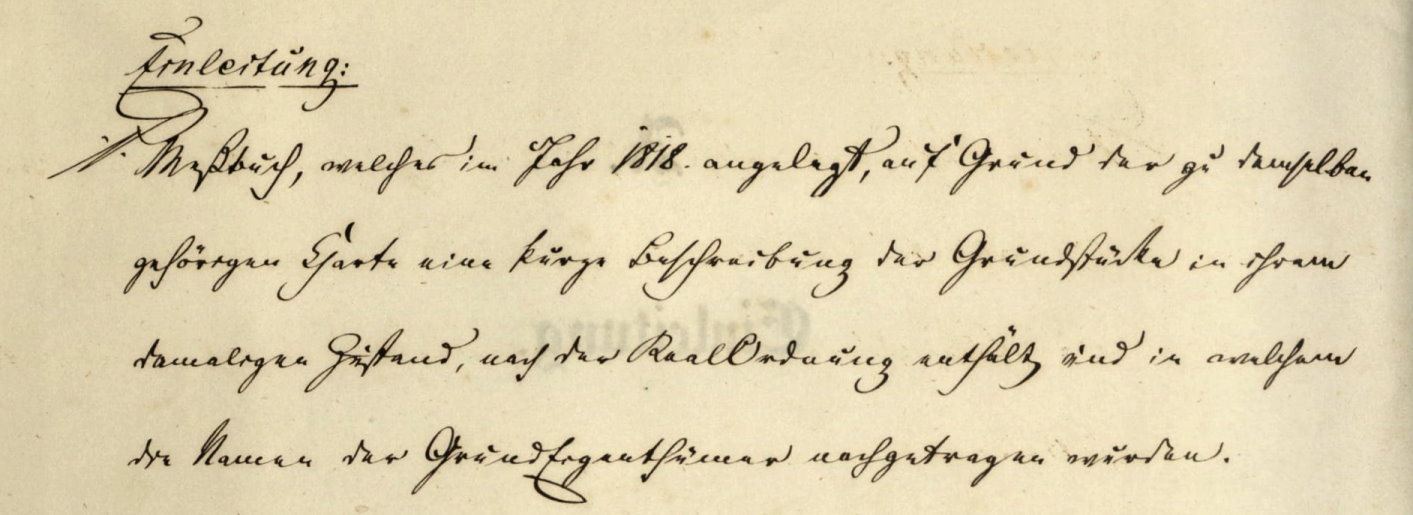 Einleitung:
1. Meßbuch, welches im Jahr 1818. angelegt, auf Grund der zu demselben
gehörigen Charte eine kurze Beschreibung der Grundstücke in ihrem
damaligen Zustand, nach der RealOrdnung enthält und in welchem
die Namen der GrundEigenthümer nachgetragen wurden.